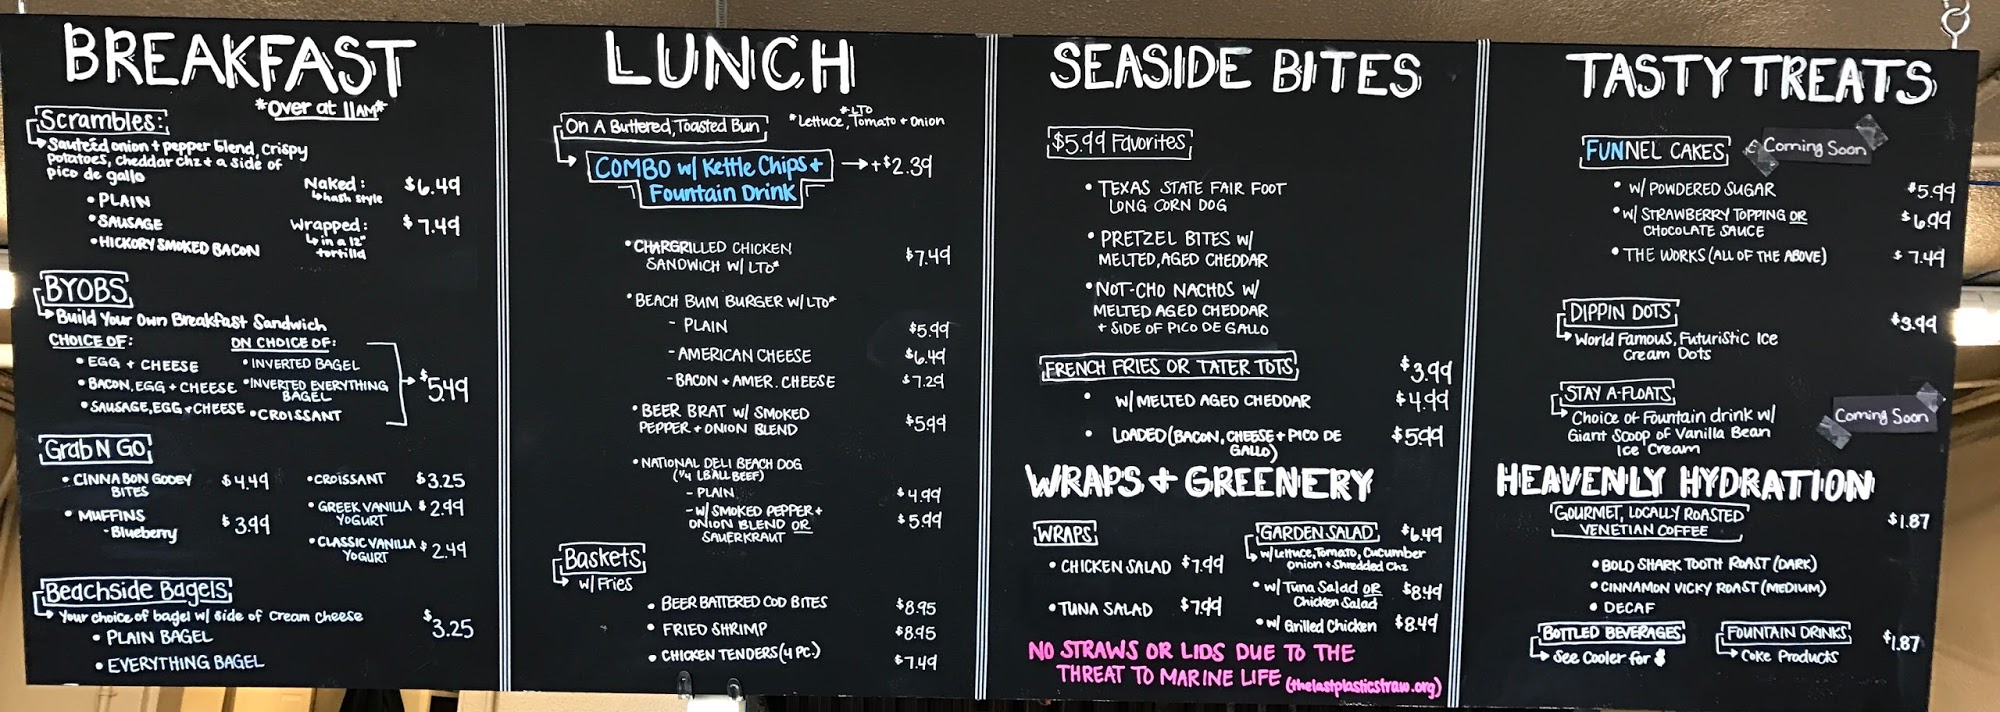 BREAKFAST
*Over at 11AM*
Scrambles:
Sautéed onion + pepper blend, crispy
potatoes, cheddar chz + a side of
pico de gallo
• PLAIN
• SAUSAGE
• HICKORY SMOKED BACON
Naked: $6.49
hash style
Wrapped: $7.49
in a 12"
tortilla
BYOBS
Build Your Own Breakfast Sandwich
CHOICE OF:
• EGG + CHEESE
• BACON, EGG + CHEESE
• SAUSAGE, EGG + CHEESE
ON CHOICE OF:
• INVERTED BAGEL
• INVERTED EVERYTHING
BAGEL
• CROISSANT
$5.49
Grab N Go
• CINNABON GOOEY $4.49
BITES
• MUFFINS $3.99
- Blueberry
• CROISSANT $3.25
• GREEK VANILLA $2.99
YOGURT
• CLASSIC VANILLA $2.49
YOGURT
Beachside Bagels
Your choice of bagel w/ side of cream cheese $3.25
• PLAIN BAGEL
• EVERYTHING BAGEL
LUNCH
On A Buttered, Toasted Bun
*LTO
*Lettuce, Tomato + Onion
COMBO w/ Kettle Chips + → +$2.39
Fountain Drink
• CHARGRILLED CHICKEN $7.49
SANDWICH W/ LTO*
• BEACH BUM BURGER W/ LTO*
- PLAIN $5.99
- AMERICAN CHEESE $6.49
- BACON + AMER. CHEESE $7.29
• BEER BRAT W/ SMOKED $5.99
PEPPER + ONION BLEND
• NATIONAL DELI BEACH DOG
(1/4 LB ALL BEEF)
- PLAIN $4.99
- W/ SMOKED PEPPER + $5.99
ONION BLEND OR
SAUERKRAUT
Baskets
w/ Fries
• BEER BATTERED COD BITES $8.95
• FRIED SHRIMP $8.95
• CHICKEN TENDERS (4 PC.) $7.49
SEASIDE BITES
$5.99 Favorites
• TEXAS STATE FAIR FOOT
LONG CORN DOG
• PRETZEL BITES W/
MELTED, AGED CHEDDAR
• NOT-CHO NACHOS W/
MELTED AGED CHEDDAR
+ SIDE OF PICO DE GALLO
FRENCH FRIES OR TATER TOTS $3.99
• W/ MELTED AGED CHEDDAR $4.99
• LOADED (BACON, CHEESE + PICO DE $5.99
GALLO)
WRAPS + GREENERY
WRAPS
• CHICKEN SALAD $7.99
• TUNA SALAD $7.99
GARDEN SALAD $6.49
w/ Lettuce, Tomato, Cucumber
onion + Shredded Chz
• w/ Tuna Salad OR $8.49
Chicken Salad
• w/ Grilled Chicken $8.49
NO STRAWS OR LIDS DUE TO THE
THREAT TO MARINE LIFE (thelastplasticstraw.org)
TASTY TREATS
FUNNEL CAKES Coming Soon
• W/ POWDERED SUGAR $5.99
• W/ STRAWBERRY TOPPING OR $6.99
CHOCOLATE SAUCE
• THE WORKS (ALL OF THE ABOVE) $7.49
DIPPIN DOTS $3.99
World Famous, Futuristic Ice
Cream Dots
STAY A-FLOATS
Coming Soon
Choice of Fountain drink w/
Giant Scoop of Vanilla Bean
Ice Cream
HEAVENLY HYDRATION
GOURMET, LOCALLY ROASTED $1.87
VENETIAN COFFEE
• BOLD SHARK TOOTH ROAST (DARK)
• CINNAMON VICKY ROAST (MEDIUM)
• DECAF
BOTTLED BEVERAGES
See Cooler for $
FOUNTAIN DRINKS $1.87
Coke Products